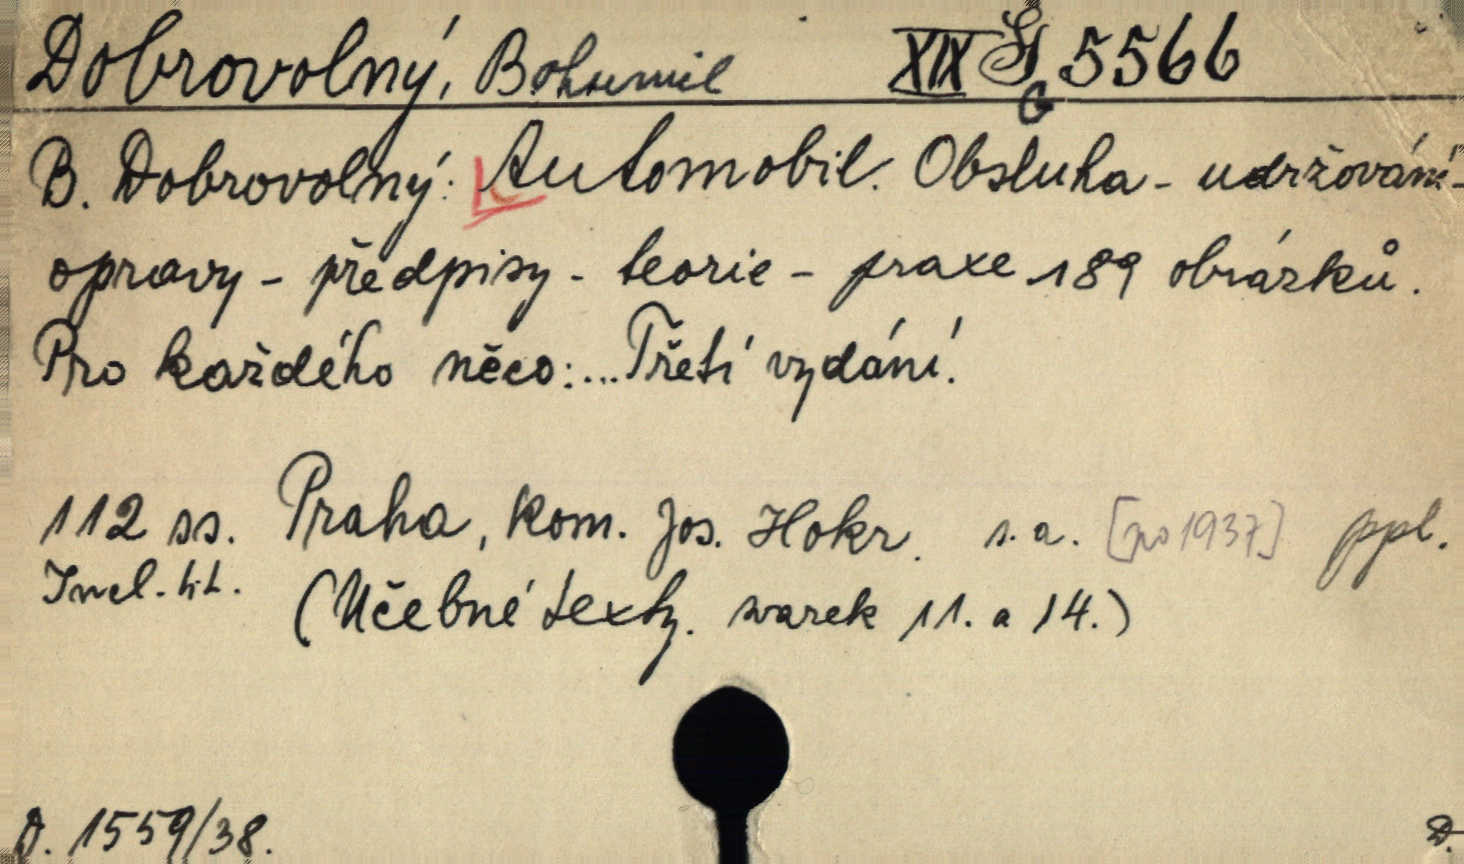 Dobrovolný, Bohumil XIX G 5566
G
B. Dobrovolný: Automobil. Obsluha - udržování -
opravy - předpisy - teorie - praxe 189 obrázků.
Pro každého něco:... Třetí vydání.
112 ss. Praha, kom. Jos. Hokr. s. a. [po 1937] ppl.
Incl. tit. (Učebné texty. svazek 11. a 14.)
D. 1559/38.
D.